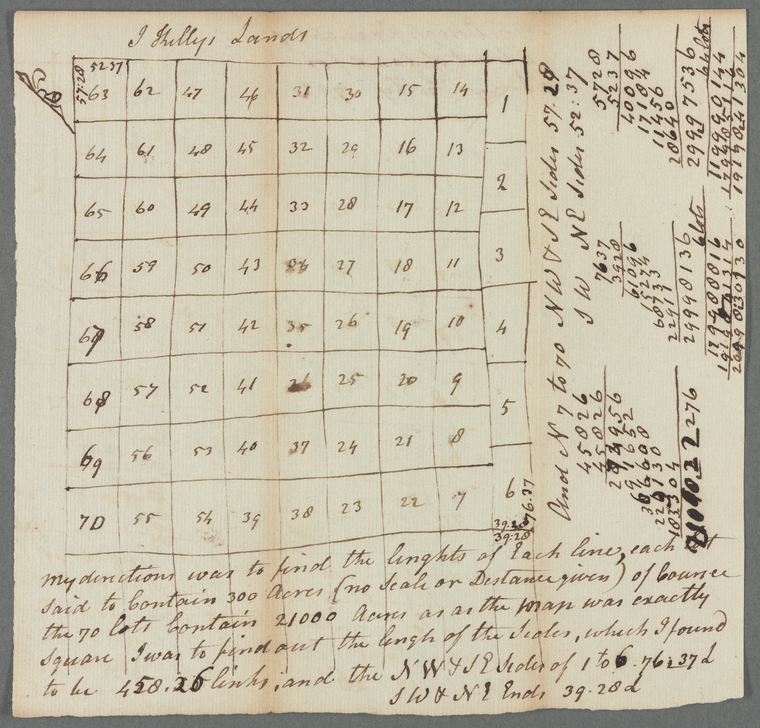 J Kellys Lands
52 37
57.28
63 62 47 46 31 30 15 14
1
64 61 48 45 32 29 16 13
2
65 60 49 44 33 28 17 12
3
66 59 50 43 34 27 18 11
4
67 58 51 42 35 26 19 10
68 57 52 41 36 25 20 9
5
69 56 53 40 37 24 21 8
6
70 55 54 39 38 23 22 7
39.28
39.28
76.37
And N 7 to 70 N W & S E Sides 57.28
S W N E Sides 52:37
5728
5237
40096
17184
11456
28640
29997536
64 lots
119990144
179985216
1919841304
7637
3928
61096
15274
68733
22911
29998136
6 lots
179988816
45826
45826
274956
91652
366608
229130
183304
2100022276
My directions was to find the lenghts of Each line, each lot
Said to Contain 300 Acres (no Scale or Distance given) of Cource
the 70 lots Contain 21000 Acres as as the map was exactly
Square I was to find out the lengh of the Sides, which I found
to be 458.26 links, and the N W & S E Sides of 1 to 6. 76:37 L
S W & N E Ends 39.28 L